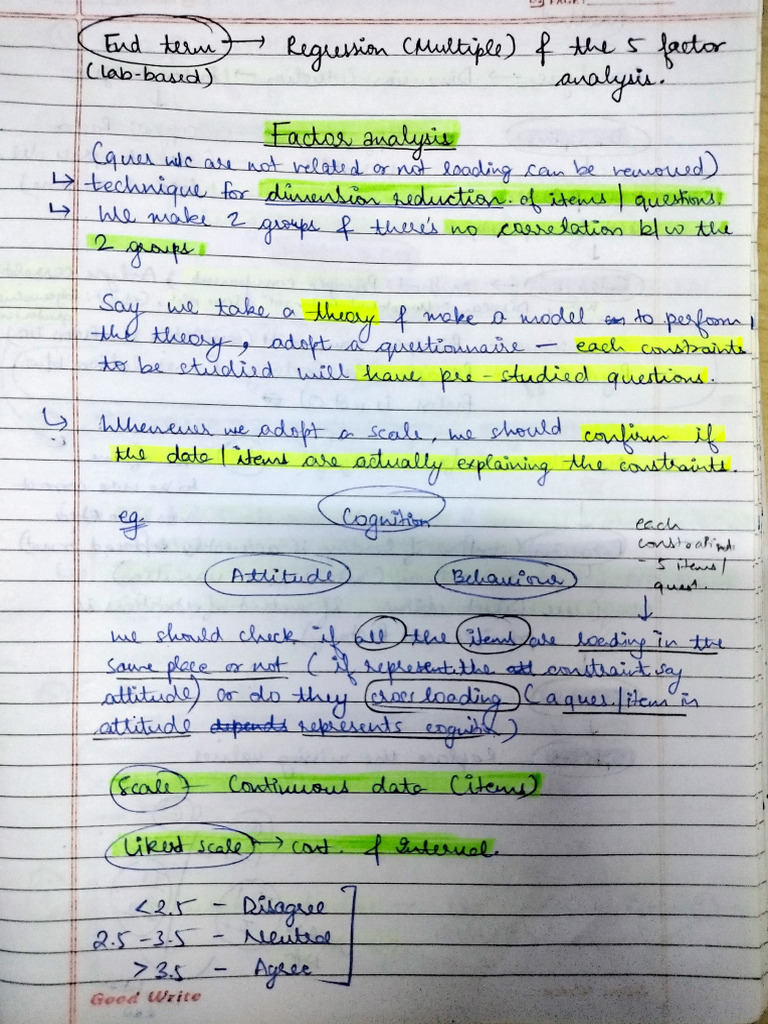 End term → Regression (Multiple) & the 5 factor
(lab-based) analysis.
Factor analysis
(ques w/c are not related or not loading can be removed)
↳ technique for dimension reduction of items / questions.
↳ We make 2 groups & there's no correlation b/w the
2 groups.
Say we take a theory & make a model to perform
the theory, adopt a questionnaire – each constraints
to be studied will have pre-studied questions.
↳ Whenever we adopt a scale, we should confirm if
the data / items are actually explaining the constraints.
eg. Cognition
each
constraint
- 5 items /
quest.
Attitude Behaviour
we should check if all the items are loading in the
same place or not (if represent the constraint say
attitude) or do they cross loading (a ques./item in
attitude depends represents cognition)
Scale – Continuous data (items)
Likert scale → cont. & Internal.
<2.5 – Disagree
2.5 – 3.5 – Neutral
>3.5 – Agree
Good Write